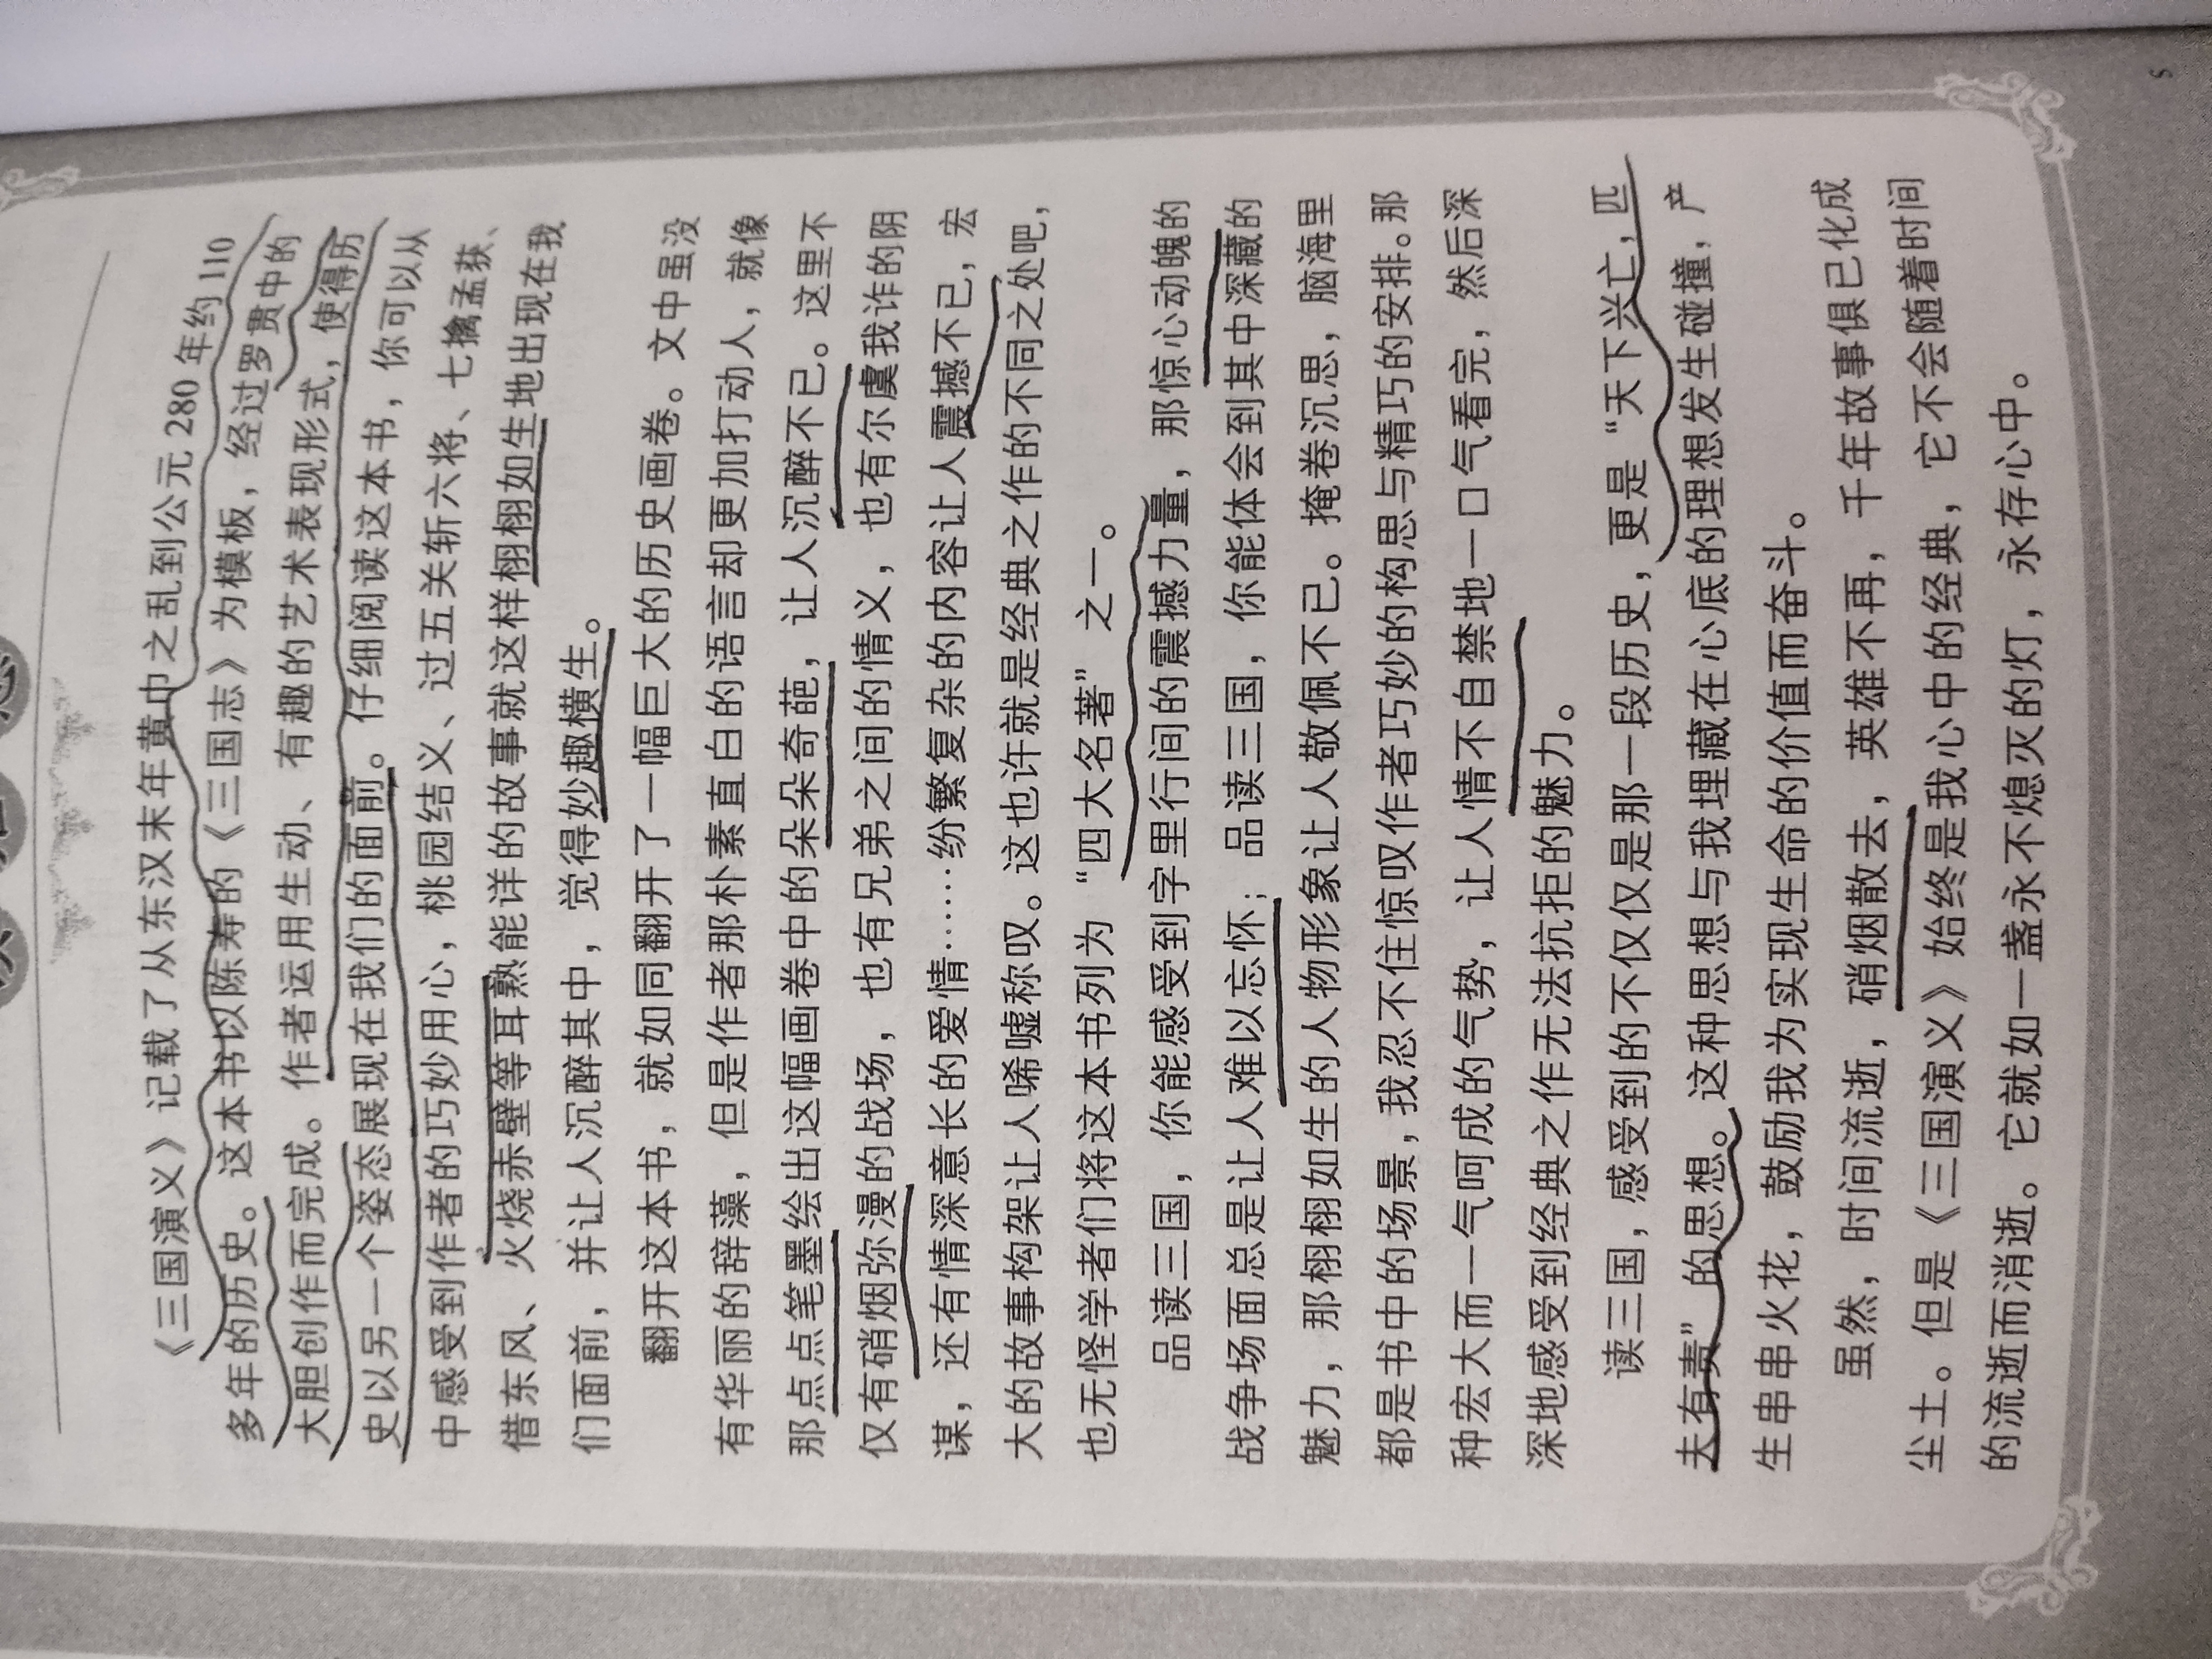 《三国演义》记载了从东汉末年黄巾之乱到公元 280 年约 110
多年的历史。这本书以陈寿的《三国志》为模板，经过罗贯中的
大胆创作而完成。作者运用生动、有趣的艺术表现形式，使得历
史以另一个姿态展现在我们的面前。仔细阅读这本书，你可以从
中感受到作者的巧妙用心，桃园结义、过五关斩六将、七擒孟获、
借东风、火烧赤壁等耳熟能详的故事就这样栩栩如生地出现在我
们面前，并让人沉醉其中，觉得妙趣横生。
翻开这本书，就如同翻开了一幅巨大的历史画卷。文中虽没
有华丽的辞藻，但是作者那朴素直白的语言却更加打动人，就像
那点点笔墨绘出这幅画卷中的朵朵奇葩，让人沉醉不已。这里不
仅有硝烟弥漫的战场，也有兄弟之间的情义，也有尔虞我诈的阴
谋，还有情深意长的爱情……纷繁复杂的内容让人震撼不已，宏
大的故事构架让人唏嘘称叹。这也许就是经典之作的不同之处吧，
也无怪学者们将这本书列为“四大名著”之一。
品读三国，你能感受到字里行间的震撼力量，那惊心动魄的
战争场面总是让人难以忘怀；品读三国，你能体会到其中深藏的
魅力，那栩栩如生的人物形象让人敬佩不已。掩卷沉思，脑海里
都是书中的场景，我忍不住惊叹作者巧妙的构思与精巧的安排。那
种宏大而一气呵成的气势，让人情不自禁地一口气看完，然后深
深地感受到经典之作无法抗拒的魅力。
读三国，感受到的不仅仅是那一段历史，更是“天下兴亡，匹
夫有责”的思想。这种思想与我埋藏在心底的理想发生碰撞，产
生串串火花，鼓励我为实现生命的价值而奋斗。
虽然，时间流逝，硝烟散去，英雄不再，千年故事俱已化成
尘土。但是《三国演义》始终是我心中的经典，它不会随着时间
的流逝而消逝。它就如一盏永不熄灭的灯，永存心中。